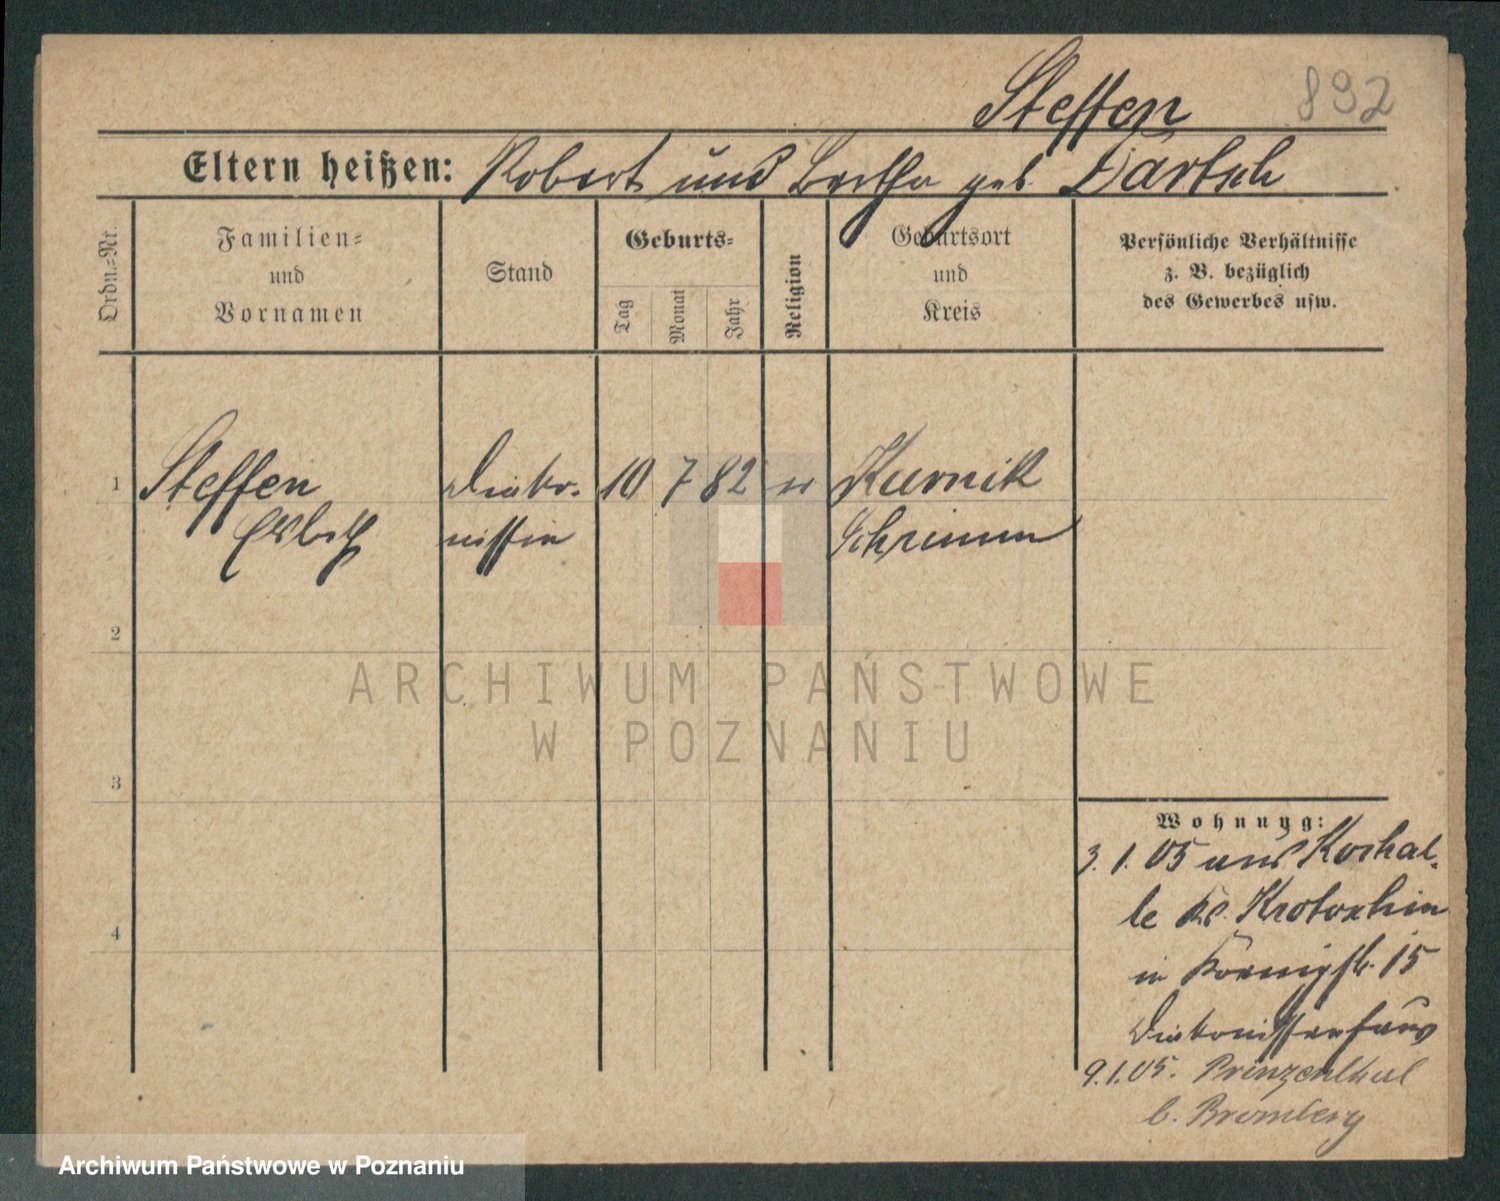 892
Steffen
Eltern heißen: Robert und Bertha geb. Bartsch
Ordn.-Nr.
Familien-
und
Vornamen
Stand
Geburts-
Tag
Monat
Jahr
Religion
Geburtsort
und
Kreis
Persönliche Verhältnisse
z. B. bezüglich
des Gewerbes usw.
1 Steffen Diako- 10 7 82 ev Kurnik
Elsbeth nissin Schrimm
2
3
4
Wohnung:
3. 1. 05 aus Koschal-
le Kr. Krotoschin
in Koenigstr. 15
Diakonissenhaus
9.1.05. Prinzenthal
b. Bromberg
ARCHIWUM PAŃSTWOWE
W POZNANIU
Archiwum Państwowe w Poznaniu